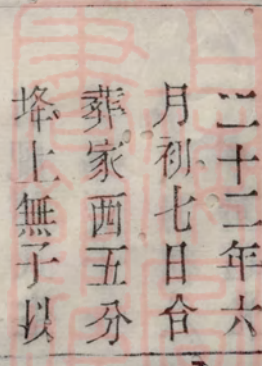 二十二年六
月初七日合
葬家西五分
垰上無子以